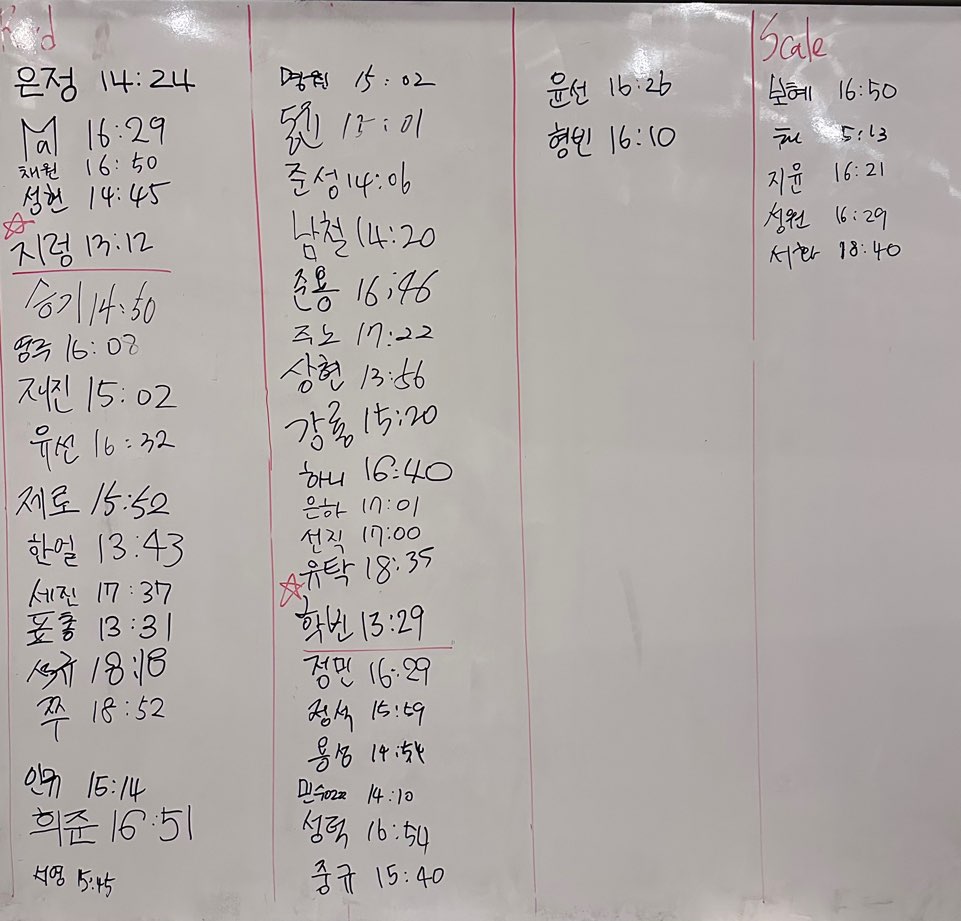 은정 14:24
16:29
채원 16:50
성헌 14:45
지렁 13:12
승기 14:50
영주 16:08
재진 15:02
유선 16:32
제로 15:52
한얼 13:43
세진 17:37
표총 13:31
석규 18:18
쭈 18:52
인위 15:14
희준 16:51
서영 15:45
명원 15:02
15:01
준성 14:06
남철 14:20
준용 16:46
주노 17:22
상현 13:56
강룡 15:20
하니 16:40
은하 17:01
선직 17:00
유탁 18:35
학빈 13:29
정민 16:29
정석 15:59
용성 14:54
민수 14:10
성덕 16:54
중규 15:40
윤선 16:26
형빈 16:10
Scale
보혜 16:50
지윤 16:21
성원 16:29
서한 18:40